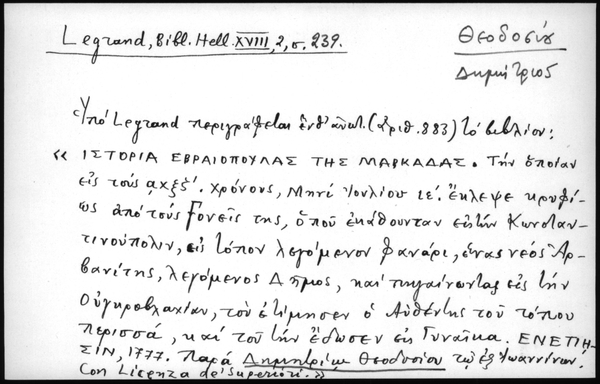 Legrand, Bibl. Hell. XVIII, 2, σ. 239.
Θεοδοσίου
Δημήτριος
Ὑπό Legrand περιγράφεται ἐνθ' ἀνωτ. (ἀριθ. 883) τό βιβλίον:
« ΙΣΤΟΡΙΑ ΕΒΡΑΙΟΠΟΥΛΑΣ ΤΗΣ ΜΑΡΚΑΔΑΣ. Τήν ὁποίαν
εἰς τούς αχξξ'. χρόνους, Μηνί Ἰουλίου ιε'. ἔκλεψε κρυφί-
ως ἀπό τούς Γονεῖς της, ὅπου ἐκάθουνταν εἰς τήν Κωνσταν-
τινούπολιν, εἰς τόπον λεγόμενον Φανάρι, ἕνας νεός Ἀρ-
βανίτης, λεγόμενος Δῆμος, καί πηγαίνωντας εἰς τήν
Οὐγκροβλαχίαν, τόν ἐτίμησεν ὁ Αὐθέντης τοῦ τόπου
περισσά, καί τοῦ τήν ἔδωσεν εἰς Γυναῖκα. ΕΝΕΤΙΗ-
ΣΙΝ, 1777. Παρά Δημητρίῳ Θεοδοσίου τῷ ἐξ Ἰωαννίνων.
Con Licenza de' Superiori. »